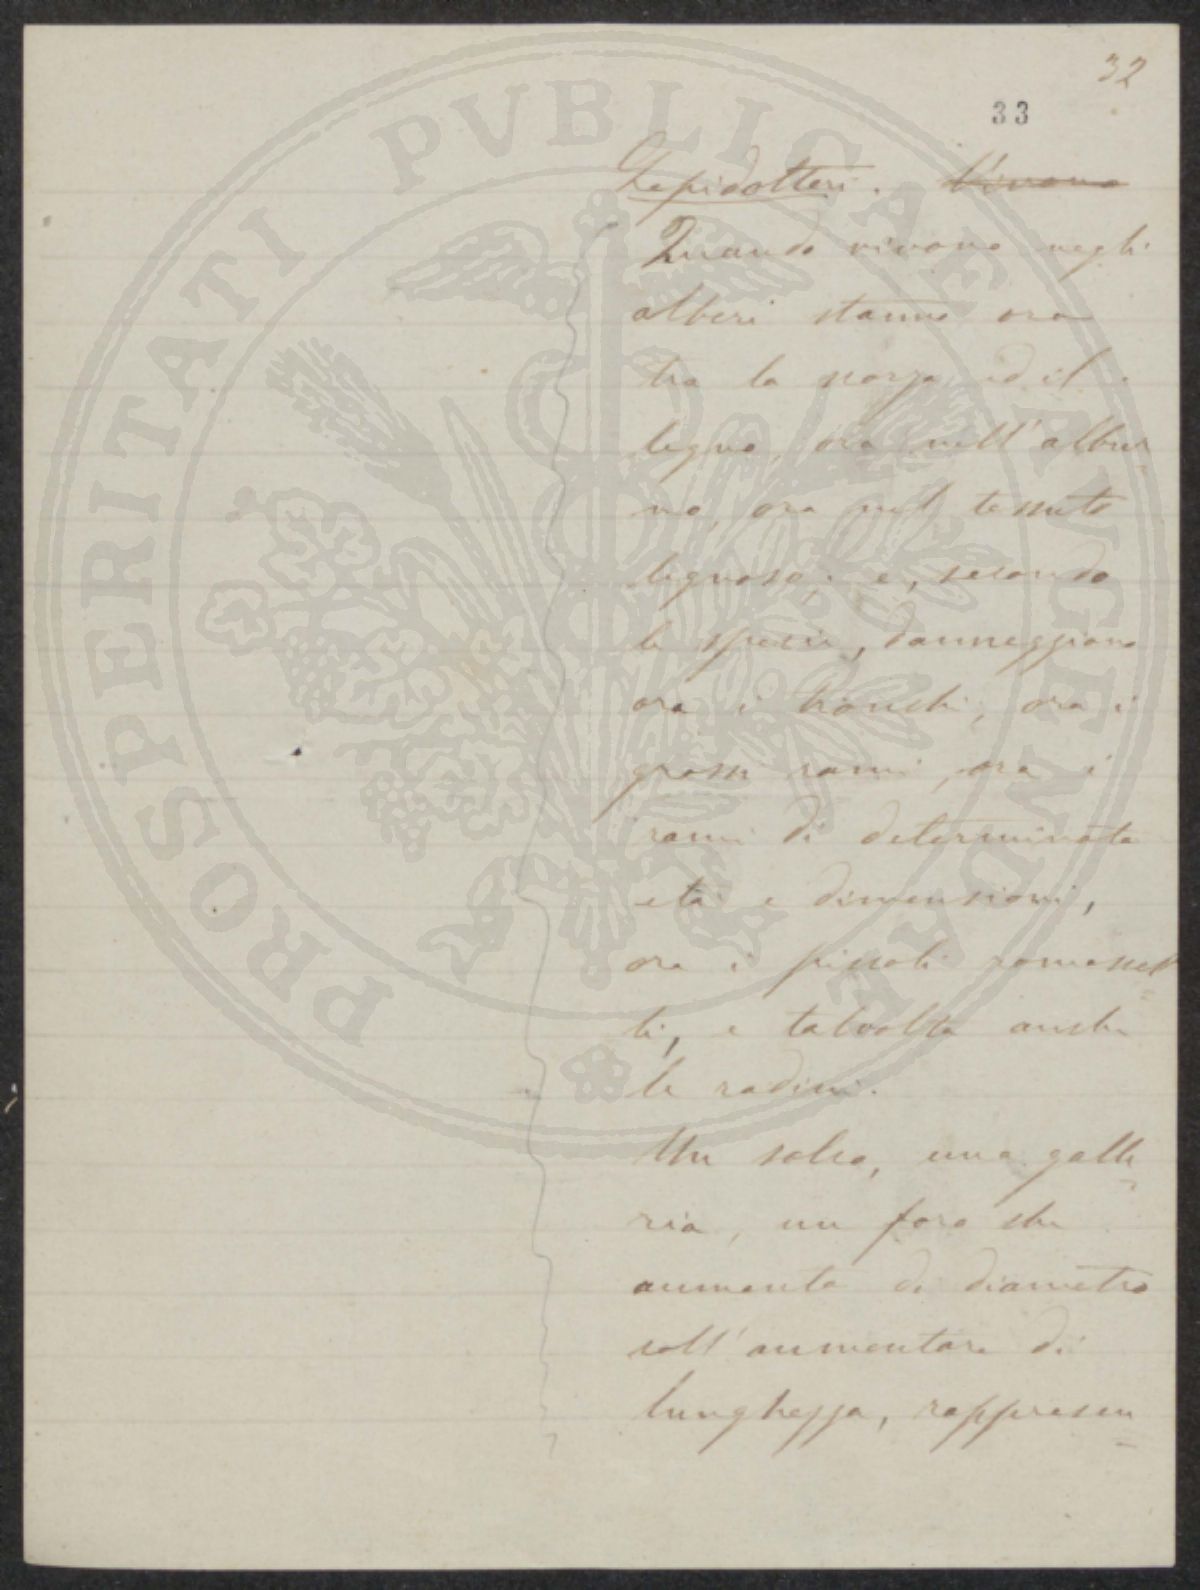 32
33
Lepidotteri. Vivono
Quando vivono negli
alberi stanno ora
tra la scorza ed il
legno, ora nell'albur-
no, ora nel tessuto
legnoso; e, secondo
le specie, danneggiano
ora i tronchi, ora i
grossi rami, ora i
rami di determinata
età e dimensioni,
ora i piccoli ramoscel-
li, e talvolta anche
le radici.
Un solco, una galle-
ria, un foro che
aumenta di diametro
coll'aumentare di
lunghezza, rappresen-
PROSPERITATI PVBLICAE AVGENDAE